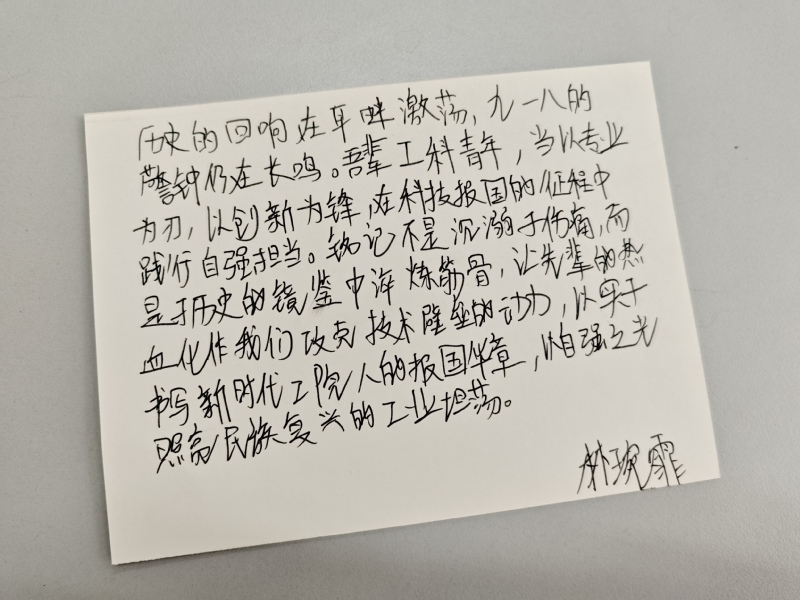 历史的回响在耳畔激荡，九一八的
警钟仍在长鸣。吾辈工科青年，当以专业
为刃，以创新为锋，在科技报国的征程中
践行自强担当。铭记不是沉溺于伤痛，而
是于历史的镜鉴中淬炼筋骨，让先辈的热
血化作我们攻克技术壁垒的动力，以实干
书写新时代工院人的报国华章，以自强之光
照亮民族复兴的工业坦荡。
林琬霏